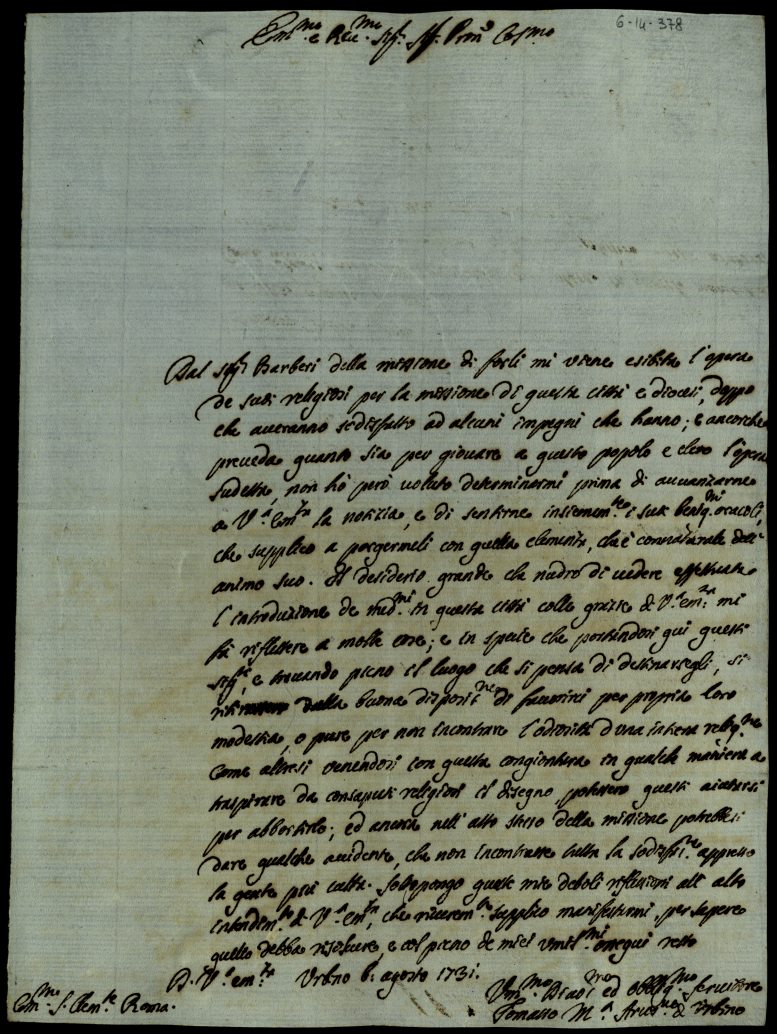 6-14-378
Em.mo e Rev.mo Sig.r Sig.r Pron.e Col.mo
Dal Sig.r Barberi della missione di forlì mi viene esibita l'opera
de suoi religiosi per la missione di questa città e diocesi, doppo
che averanno sodisfatto ad alcuni impegni che hanno; e ancorche
preveda quanto sia per giovare a questo popolo e clero l'opera
sudetta, non hò però voluto determinarmi prima di avvanzarne
a V.a Em.za la notizia, e di sentirne insiemem.te i suoi benig.mi oracoli,
che supplico a porgermeli con quella clemenza, che è connaturale dell'
animo suo. Il desiderio grande che nudro di vedere effettuata
l'introduzione de med.mi in questa città colle grazie di V.a em.za mi
fà riflettere a molte cose; e in specie che portandosi qui questi
Sig.ri, e trovando pieno il luogo che si pensa di destinarsegli, si
dalla buona disposit.ne di favorirci per propria loro
modestia, o pure per non incontrare l'odiosità d'una intera relig.ne
Come altresì venendosi con questa congiontura in qualche maniera a
traspirare da consaputi religiosi il disegno, potrebbero questi aiutarsi
per abbortirlo; ed ancora nell'atto stesso della missione potrebbesi
dare qualche accidente, che non incontrasse tutta la sodisfat.ne appresso
la gente più culta. Sottopongo queste mie deboli riflessioni all'alto
intendim.to di V.a em.za, che riverem.te supplico manifestarmi, per sapere
quello debba risolvere, e col pieno de miei umil.mi ossequi resto
D. V.a em.za Urbino 6. agosto 1731.
Um.mo Div.mo ed obblig.mo servitore
Tomasso M.a Arciv.vo di Urbino
Em.mo S. Clem.te Roma.